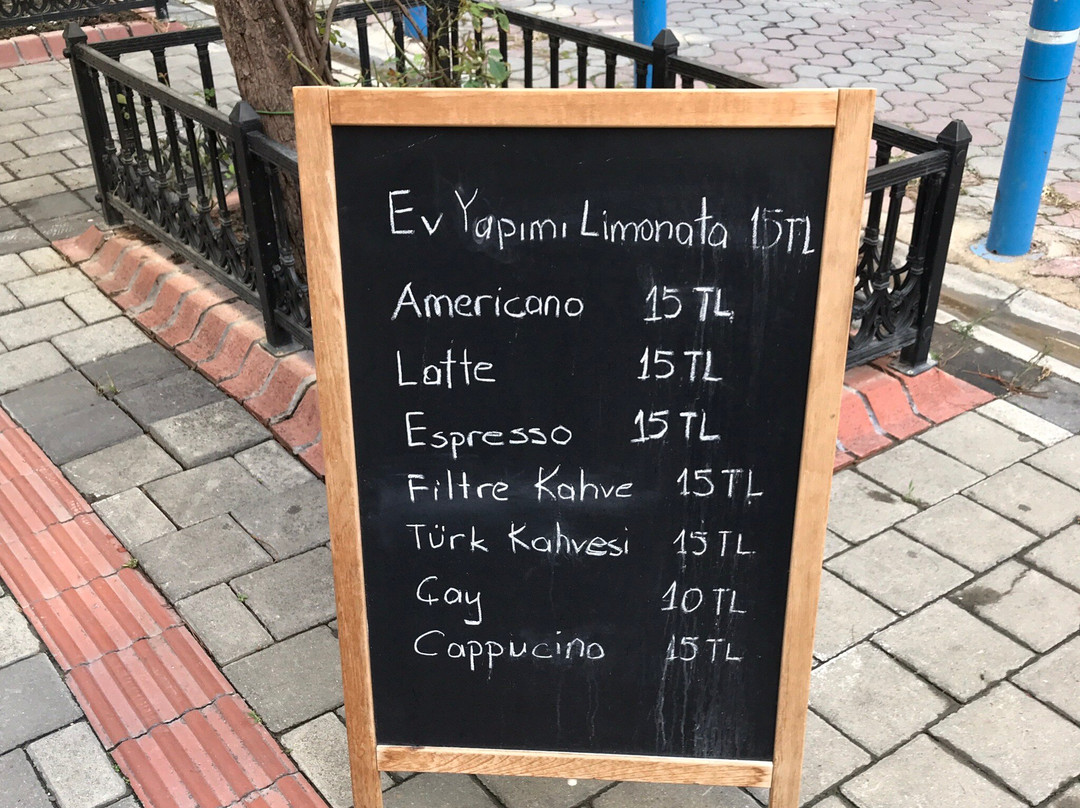 Ev Yapımı Limonata 15TL
Americano 15 TL
Latte 15 TL
Espresso 15 TL
Filtre Kahve 15 TL
Türk Kahvesi 15 TL
Çay 10 TL
Cappucino 15 TL